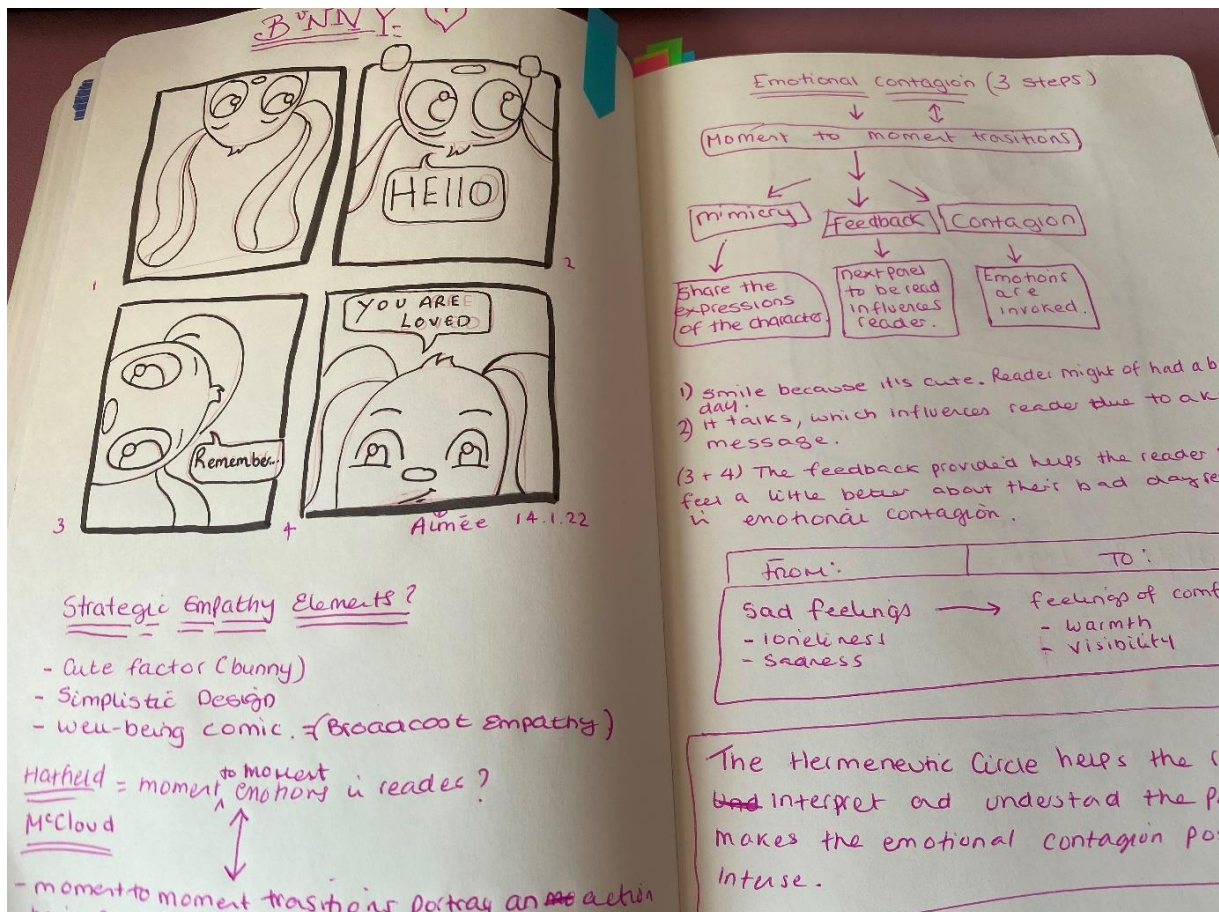 BUNNY
1
HELLO
2
Remember...
3
YOU ARE
LOVED
4
Aimēe 14.1.22
Strategic Empathy Elements?
- Cute factor (bunny)
- Simplistic Design
- Well-being comic. (Broadcast Empathy)
Hatfield = moment to moment emotions in reader?
McCloud
- moment to moment trasitions portray an action
Emotional contagion (3 steps)
Moment to moment trasitions
Mimicry
Feedback
Contagion
Share the
expressions
of the character.
next panel
to be read
influences
reader.
Emotions
are
invoked.
1) Smile because it's cute. Reader might of had a b
day.
2) It talks, which influences reader due to a k
message.
(3 + 4) The feedback provided helps the reader
feel a little better about their bad day
in emotional contagion.
From:
TO:
Sad feelings
- loneliness
- sadness
feelings of comf
- warmth
- visibility
The Hermeneutic Circle helps the
interpret ad understad the p
makes the emotional contagion po
intense.